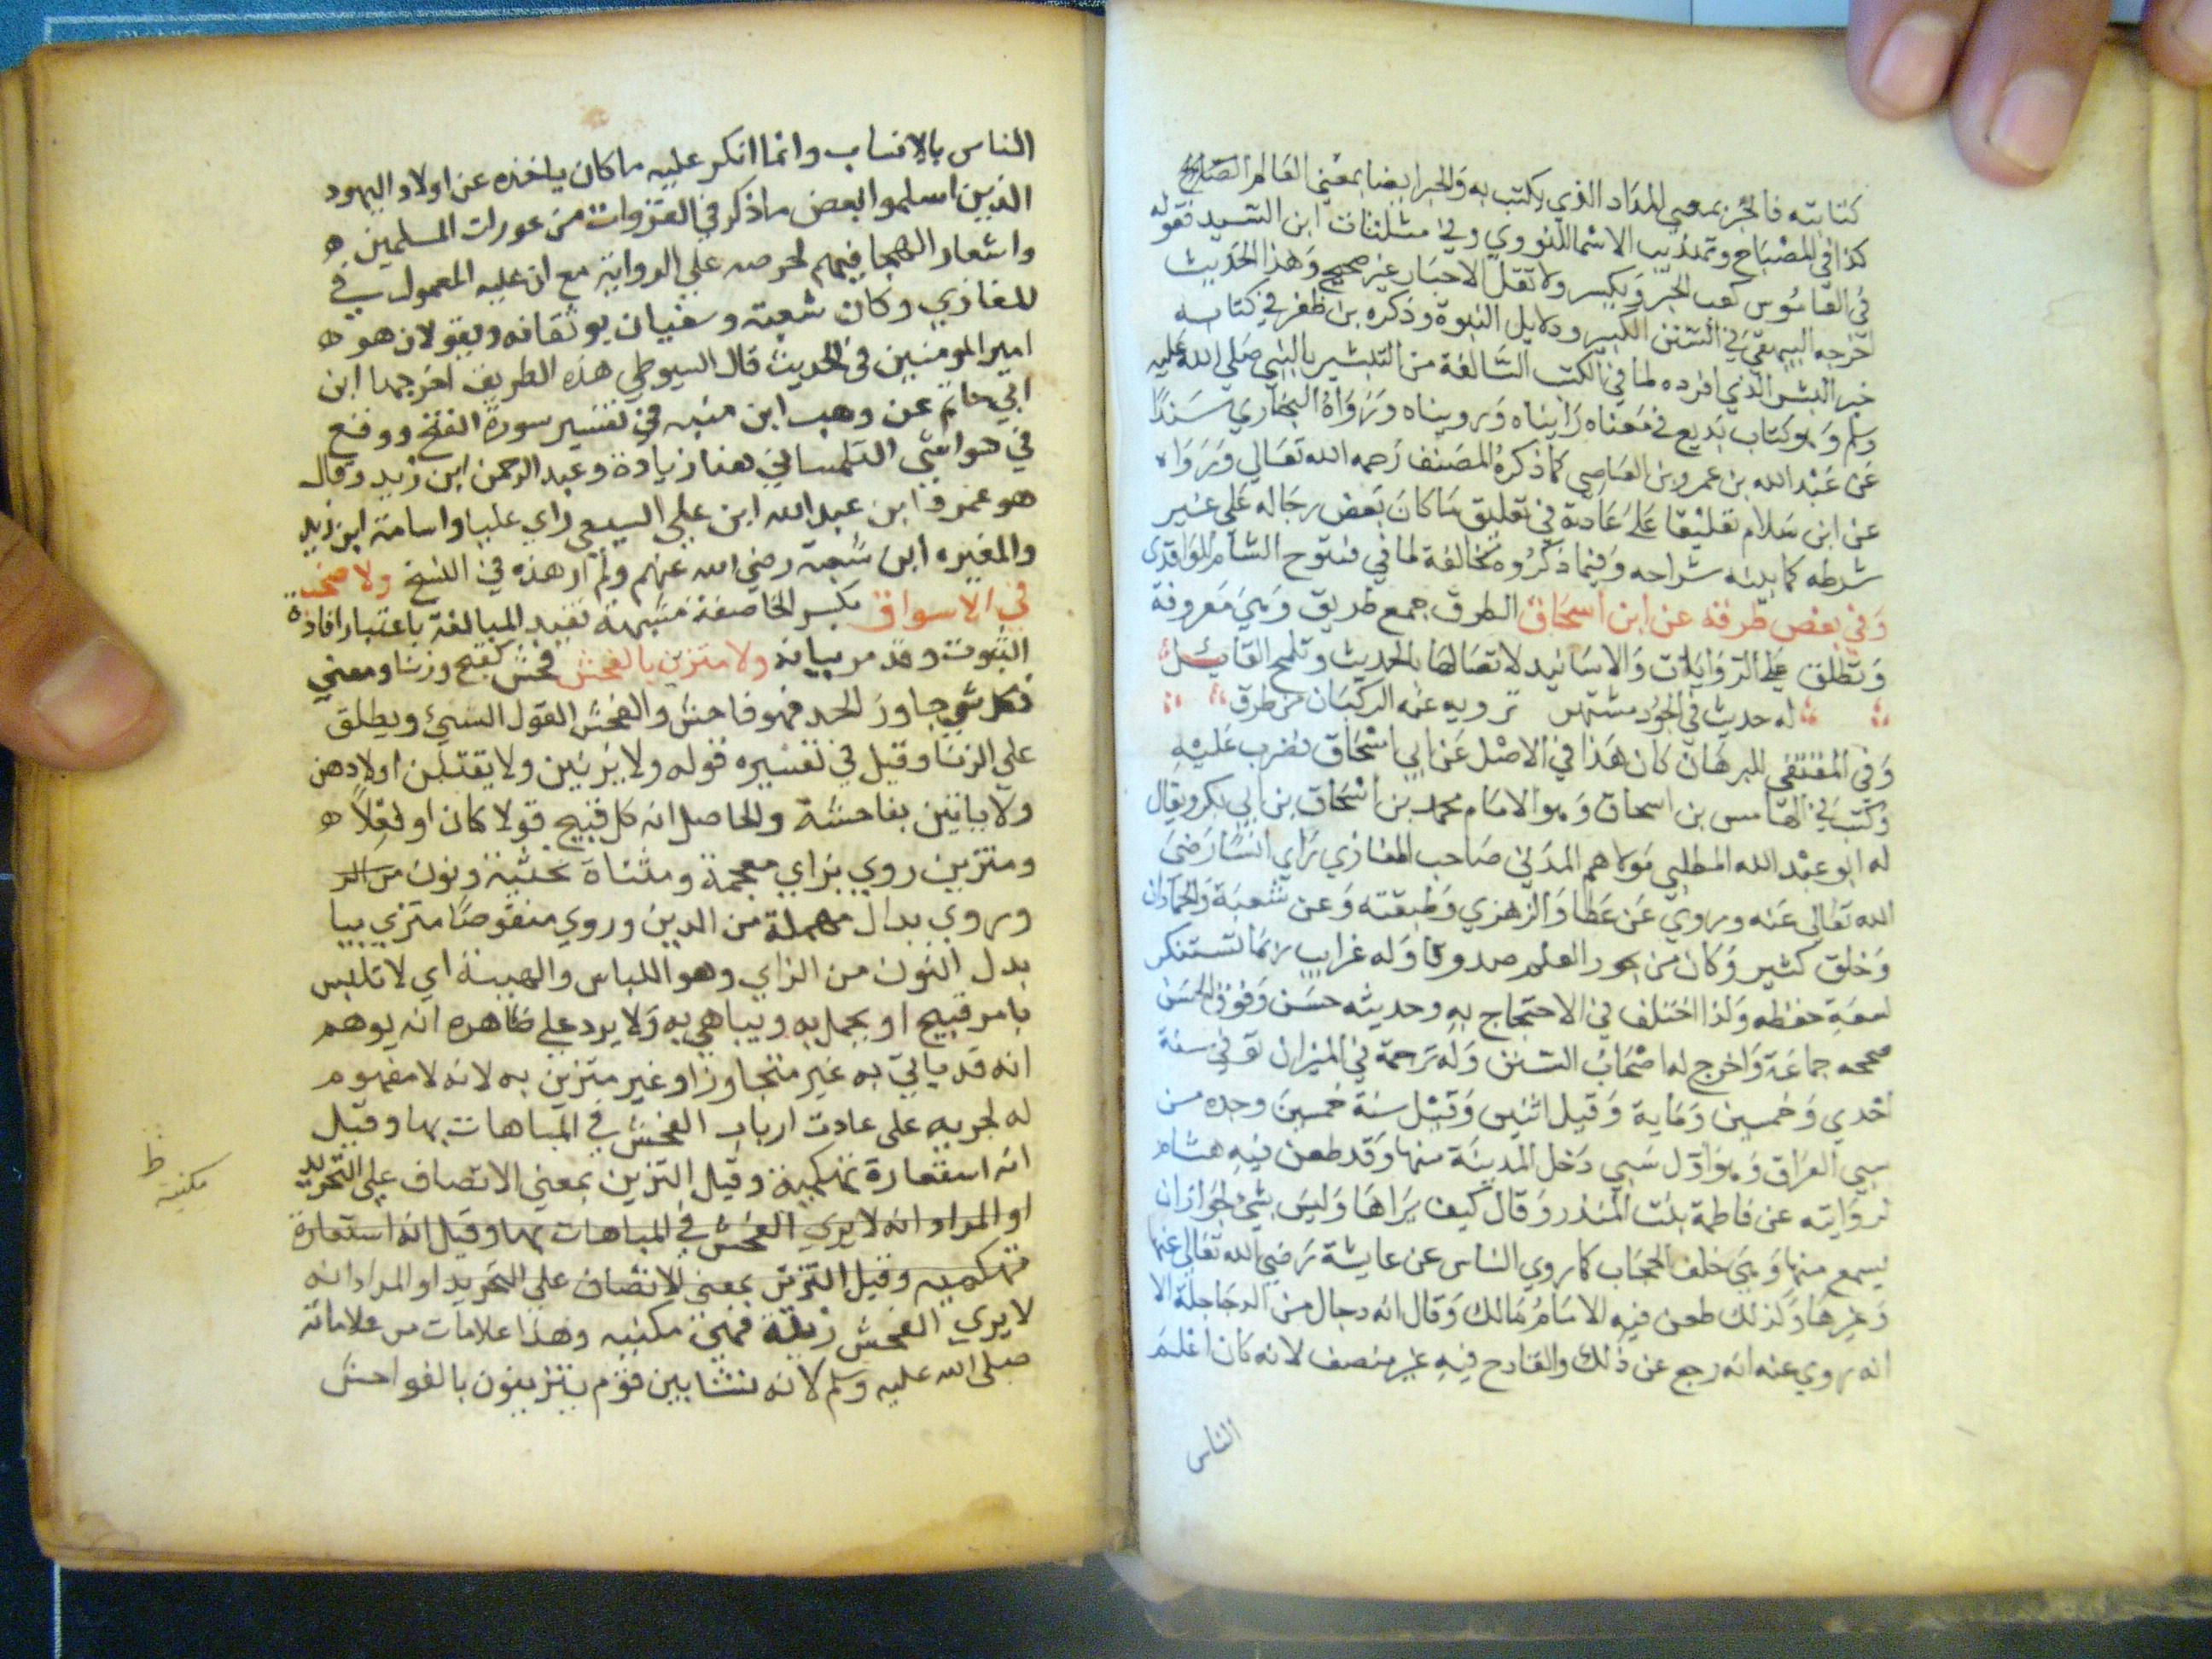 كتابته فالحبر بمعني المداد الذي يكتب به والحبر ايضا بمعني العالم الصالح
كذا في المصباح وتهذيب الاسما للنووي وفي مثلثات ابن السيد فقوله
في القاموس كعب الحبر ويكسر ولا تقل الاحبار غير صحيح وهذا الحديث
اخرجه البيهقي في السنن الكبير ودلايل النبوة وذكره بن ظفر في كتابه
خير البشر الذي افرده لما في الكتب السالفة من التبشير بالنبي صلي الله عليه
وسلم وهو كتاب بديع في معناه رايناه ورويناه ورواه البخاري سندا
عن عبد الله بن عمرو بن العاصي كما ذكره المصنف رحمه الله تعالي ورواه
عن ابن سلام تعليقا علي عادته في تعليق ما كان بعض رجاله علي غير
شرطه كما بينه شراحه وفيما ذكروه مخالفة لما في فتوح الشام للواقدي
وفي بعض طرقه عن ابن اسحاق الطرق جمع طريق وهي معروفة
وتطلق علي الروايات والاسانيد لاتصالها بالحديث وتلمح القايل
له حديث في الجود مشتهر ترويه عنه الركبان من طرق
وفي المقتفي للبرهان كان هذا في الاصل عن ابي اسحاق فضرب عليه
وكتب في الهامس بن اسحاق وهو الامام محمد بن اسحاق بن ابي بكر ويقال
له ابو عبد الله المطلبي مولاهم المدني صاحب المغازي راي انسا رضي
الله تعالي عنه وروي عن عطا والزهري وطبقته وعن شعبة والحمادان
وخلق كثير وكان من بحور العلم صدوقا وله غرايب ربما تستنكر
لسعة حفظه ولذا اختلف في الاحتجاج به وحديثه حسن وفوق الحسن
صححه جماعة واخرج له اصحاب السنن وله ترجمة في الميزان توفي سنة
احدي وخمسين وماية وقيل اثنين وقيل سنة خمسين وحده من
سبي العراق وهو اول سبي دخل المدينة منها وقد طعن فيه هشام
لروايته عن فاطمة بنت المنذر وقال كيف يراها وليس بشي لجواز ان
يسمع منها وهي خلف الحجاب كما روي الناس عن عايشة رضي الله تعالي عنها
وغيرها وكذلك طعن فيه الامام مالك وقال انه دجال من الدجاجلة الا
انه روي عنه انه رجع عن ذلك والقادح فيه غير منصف لانه كان اعلم
الناس
الناس بالانساب وانما انكر عليه ما كان ياخذه عن اولاد اليهود
الذين اسلموا بعض ما ذكر في الغزوات من عورات المسلمين ه
واشعار الهجا فيهم لحرصه علي الرواية مع ان عليه المعمول في
المغازي وكان شعبة وسفيان يوثقانه ويقولان هو ه
امير المومنين في الحديث قال السيوطي هذه الطريق اخرجها ابن
ابي حاتم عن وهب ابن منبه في تفسير سورة الفتح ووقع
في حواشي التلمساني هنا زيادة وعبد الرحمن ابن زيد وقال
هو عمرو ابن عبد الله ابن علي السبيعي راي عليا واسامة ابن زيد
والمغيره ابن شعبة رضي الله عنهم ولم ار هذه في النسخ ولا صخب
في الاسواق بكسر الخا صفة مشبهة تفيد المبالغة باعتبار افادة
الثبوت وقد مر بيانه ولا متزين بالفحش فحش كقبح وزنا ومعني
فكل شي جاوز الحد فهو فاحش والفحش القول السيئ ويطلق
علي الزنا وقيل في تفسيره قوله ولا يزنين ولا يقتلن اولادهن
ولا ياتين بفاحشة والحاصل انه كل قبيح قولا كان او فعلا ه
ومتزين روي بزاي معجمة ومثناة تحتية ونون من الز
وروي بدال مهملة من الدين وروي منقوصا متزي بيا
بدل النون من الزاي وهو اللباس والهيئة اي لا تلبس
بامر قبيح او يجمل به ويباهي به ولا يرد علي ظاهره انه يوهم
انه قد ياتي به غير متجاوز او غير متزين به لانه لا مفهوم
له لجريه علي عادت ارباب الفحش في المباهات بها وقيل
انه استعارة تهكمية وقيل التزين بمعني الاتصاف علي التجريد
او المراد انه لا يري الفحش في المباهات بها وقيل انه استعارة
تهكميه وقيل التزين بمعني الاتصاف علي التجريد او المراد انه
لا يري الفحش زينة فهي مكنيه وهذا علامات من علاماته
صلي الله عليه وسلم لانه نشا بين قوم يتزينون بالفواحش
مكنية ظ